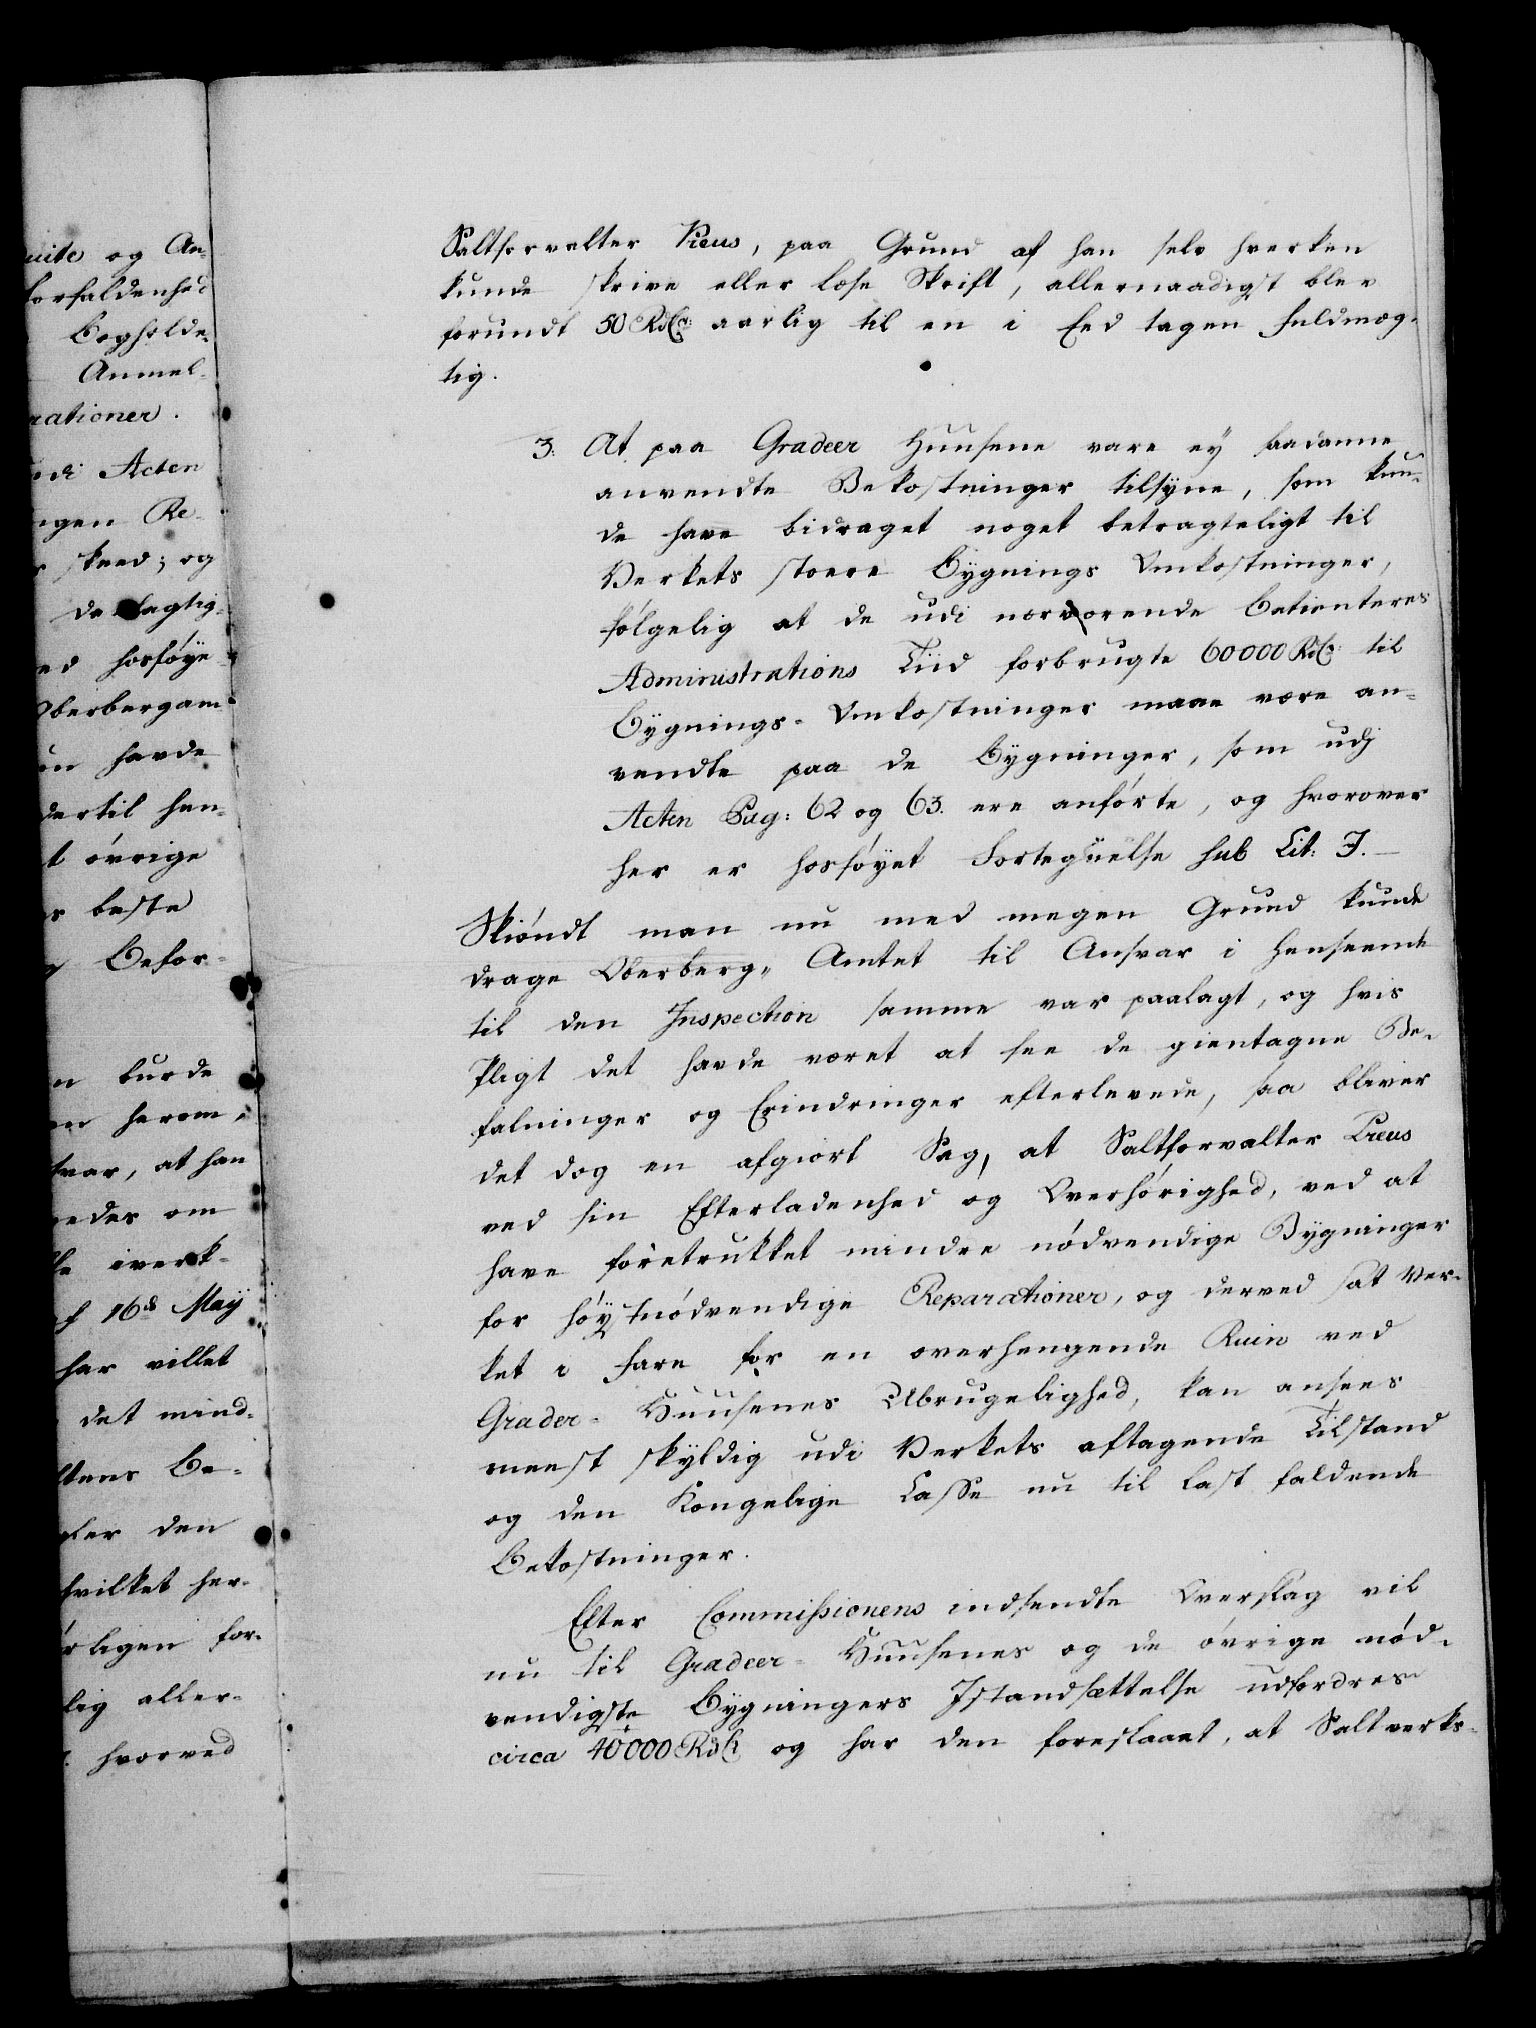 uite og An-
forfaldenhed
Bogholde-
Anmel-
rationer.
udi Acten
ngen Re-
skeed; og
delagtig-
ed hosføye
Oberbergam-
havde
dertil hen-
t øvrige
beste
Befor-
burde
herom,
svar, at han
om
iverk-
16de Maÿ
har villet
det mind-
ltens Be-
ller den
hvilket her-
rligen for-
lig aller-
hvorved
Saltforvalter Preus, paa Grund af han selv hverken
kunde skrive eller læse Skrift, allernaadigst blev
forundt 50 Rdlr. aarlig til en i Eed tagen Fuldmæg-
tig.
3. At paa Gradeer Huusene vare eÿ saadanne
anvendte Bekostninger tilsÿne, som kun-
de have bidraget noget betragteligt til
Verkets stoere Bÿgnings Omkostninger,
følgelig at de udi nærværende Betienteres
Administrations Tiid forbrugte 60000 Rdlr. til
Bÿgnings-Omkostninger maae være an-
vendte paa de Bÿgninger, som udj
Acten Pag: 62 og 63. ere anførte, og hvorover
her er hosføyet Fortegnelse sub Lit: I.
Skiøndt man nu med megen Grund kunde
drage Oberberg-Amtet til Ansvar i Henseende
til den Inspection samme var paalagt, og hvis
Pligt det havde været at see de gientagne Be-
falninger og Erindringer efterlevede, saa bliver
det dog en afgiort Sag, at Saltforvalter Preus
ved sin Efterladenhed og Overhørighed, ved at
have foretrukket mindre nødvendige Bÿgninger
for høÿstnødvendige Reparationer, og derved sat Ver-
ket i Fare for en overhengende Ruin ved
Grader-Huusenes Ubrugelighed, kan ansees
meest skÿldig udi Verkets aftagende Tilstand
og den Kongelige Casse nu til Last faldende
Bekostninger.
Efter Commissionens indsendte Overslag vil
nu til Gradeer-Huusenes og de øvrige nød-
vendigste Bÿgningers Istandsættelse udfordres
circa 40000 Rdlr og har den foreslaaet, at Saltverks-